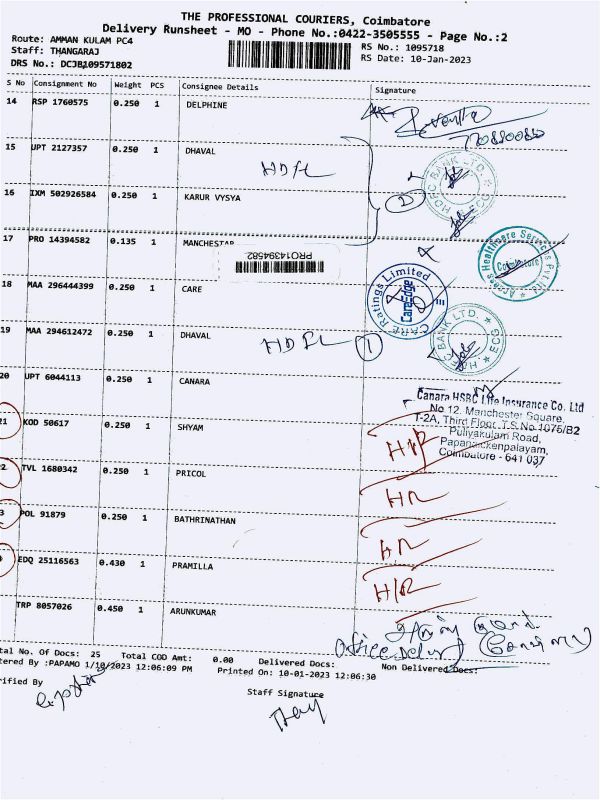 THE PROFESSIONAL COURIERS, Coimbatore
Delivery Runsheet - MO - Phone No.:0422-3505555 - Page No.:2
Route: AMMAN KULAM PC4
RS No.: 1095718
Staff: THANGARAJ
RS Date: 10-Jan-2023
DRS No.: DCJB109571802
S No Consignment No Weight PCS Consignee Details Signature
14 RSP 1760575 0.250 1 DELPHINE
15 UPT 2127357 0.250 1 DHAVAL
HDFC
HDFC BANK LTD.
16 IXM 502926584 0.250 1 KARUR VYSYA
2
17 PRO 14394582 0.135 1 MANCHESTAR
PRO14394582
Healthcare Services Pvt Ltd
Coimbatore
18 MAA 296444399 0.250 1 CARE
CARE Ratings Limited
CareEdge
19 MAA 294612472 0.250 1 DHAVAL
HDFC 1
HDFC BANK LTD.
20 UPT 6044113 0.250 1 CANARA
Canara HSBC Life Insurance Co. Ltd
No 12, Manchester Square,
T-2A, Third Floor, T.S.No.1076/B2
Puliyakulam Road,
Papanaickenpalayam,
Coimbatore - 641 037
21 KOD 50617 0.250 1 SHYAM
22 TVL 1680342 0.250 1 PRICOL
HR
3 POL 91879 0.250 1 BATHRINATHAN
HR
EDQ 25116563 0.430 1 PRAMILLA
H/R
TRP 8057026 0.450 1 ARUNKUMAR
tal No. Of Docs: 25 Total COD Amt: 0.00 Delivered Docs: Non Delivered Docs:
tered By :PAPAMO 1/10/2023 12:06:09 PM Printed On: 10-01-2023 12:06:30
rified By
Staff Signature